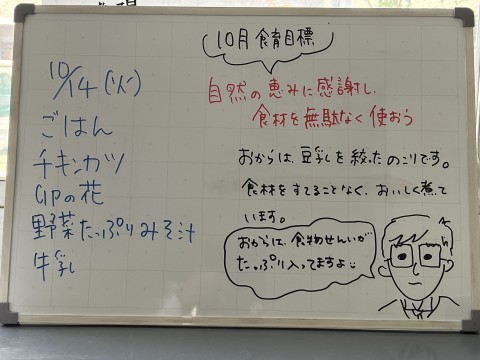 10月 食育目標
10/14(火)
ごはん
チキンカツ
卯の花
野菜たっぷりみそ汁
牛乳
自然の恵みに感謝し、
食材を無駄なく使おう
おからは、豆乳を絞ったのこりです。
食材をすてることなく、おいしく煮て
います。
おからは、食物せんいが
たっぷり入ってますよ